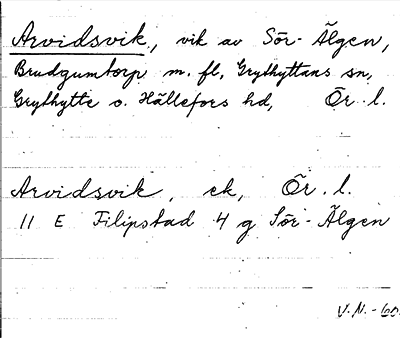 Arvidsvik, vik av Sör-Älgen,
Brudgumtorp m. fl., Grythyttans sn,
Grythytte o. Hällefors hd, Ör. l.
Arvidsvik, ek, Ör. l.
11 E Filipstad 4 g Sör-Älgen
V. N. -60.